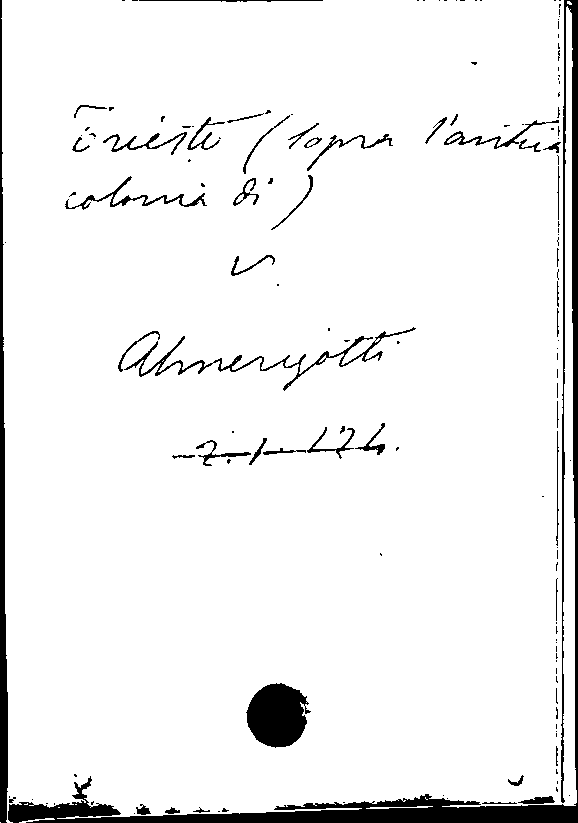 Trieste (sopra l'antica
colonia di)
v.
Almerigotti